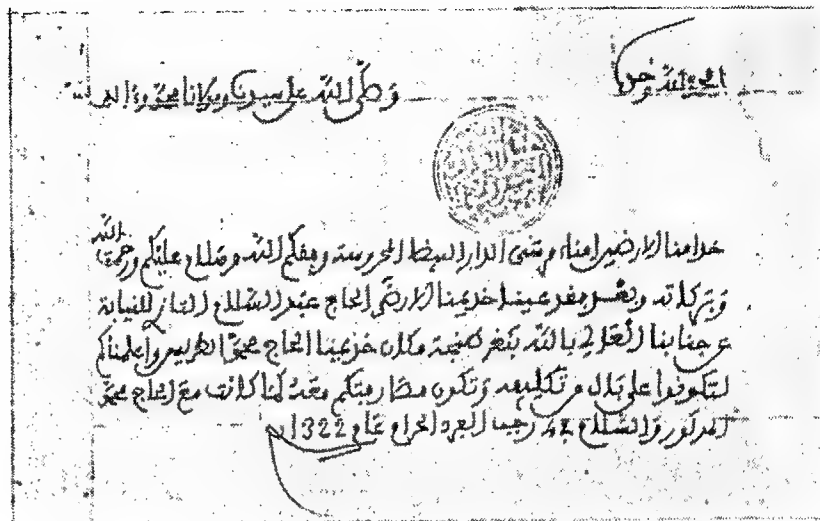 الحمد لله وحده
وصلى الله على سيدنا ومولانا محمد وءاله
خدامنا الارضين امناء مرسى الدار البيضاء المحروسة وفقكم الله وسلام عليكم ورحمت الله
وبركاته وبعد فقد عينا خديمنا الارضى الحاج عبد السلام التاز للنيابة
عن جنابنا العالي بالله بثغر طنجة مكان خديمنا الحاج محمد الطريس وأعلمناكم
لتكونوا على بال من تكليفه وتكون مخاربتكم معه كما كانت مع الحاج محمد
المذكور والسلام في رجب الفرد الحرام عام 1322